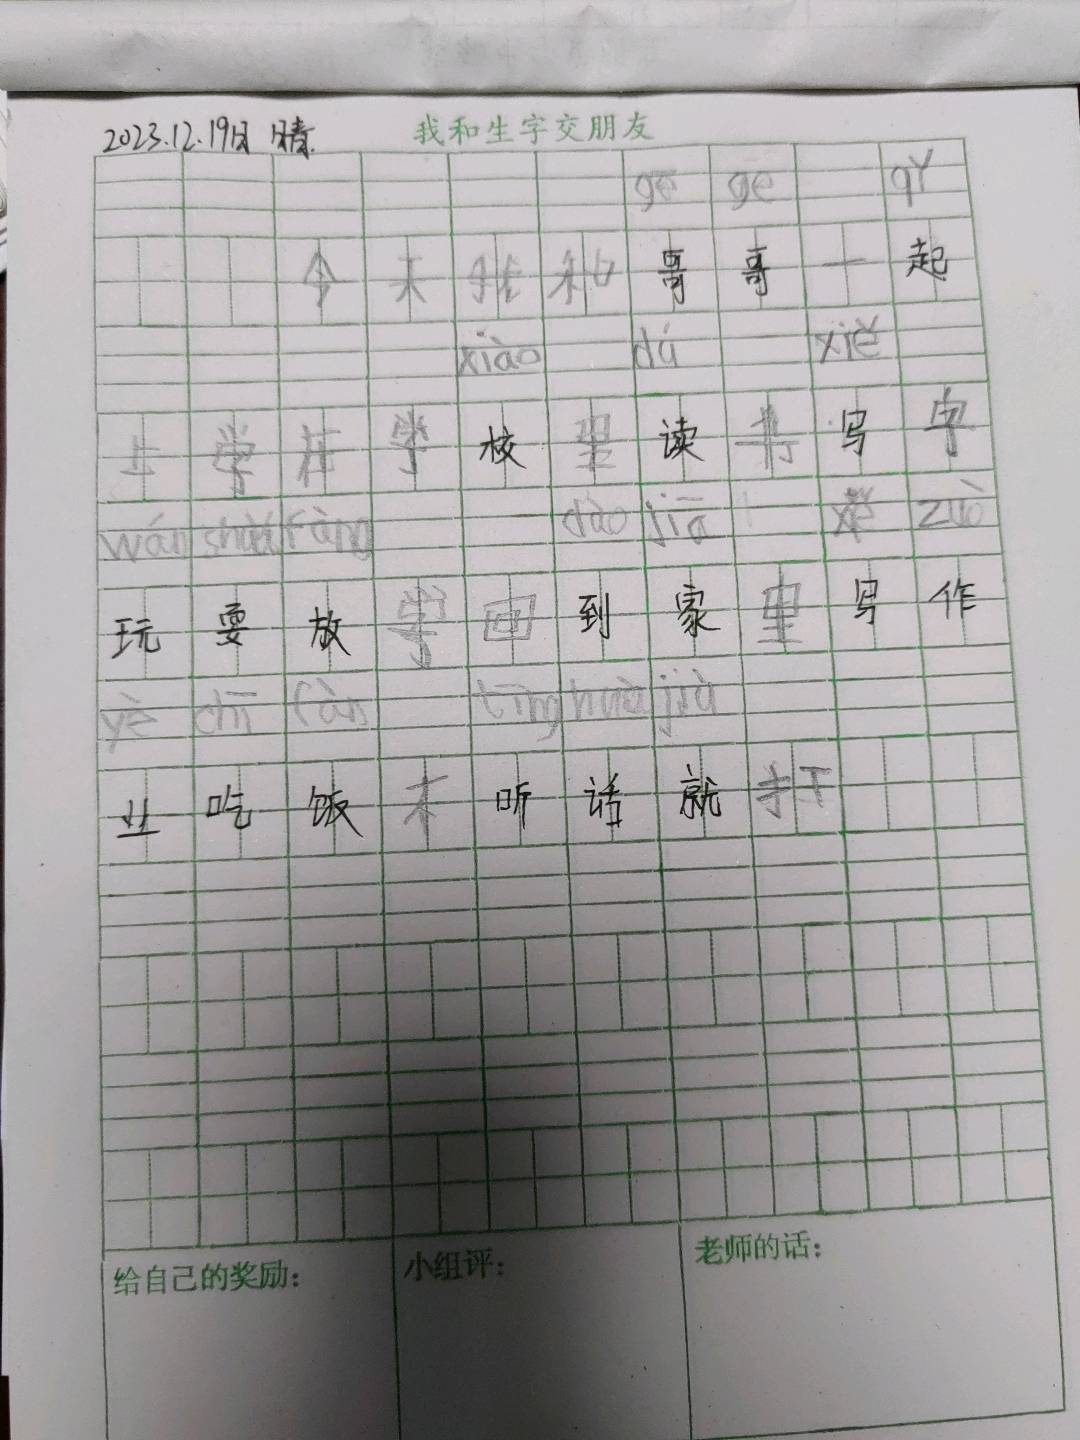 2023.12.19日 晴.
我和生字交朋友
gē ge qǐ
今天我和哥哥一起
xiào dú xiě
上学在学校里读书写字
wán shuǎ fàng dào jiā xiě zuò
玩耍放学回到家里写作
yè chī fàn tīng huà jiù
业吃饭不听话就打
给自己的奖励:
小组评:
老师的话: